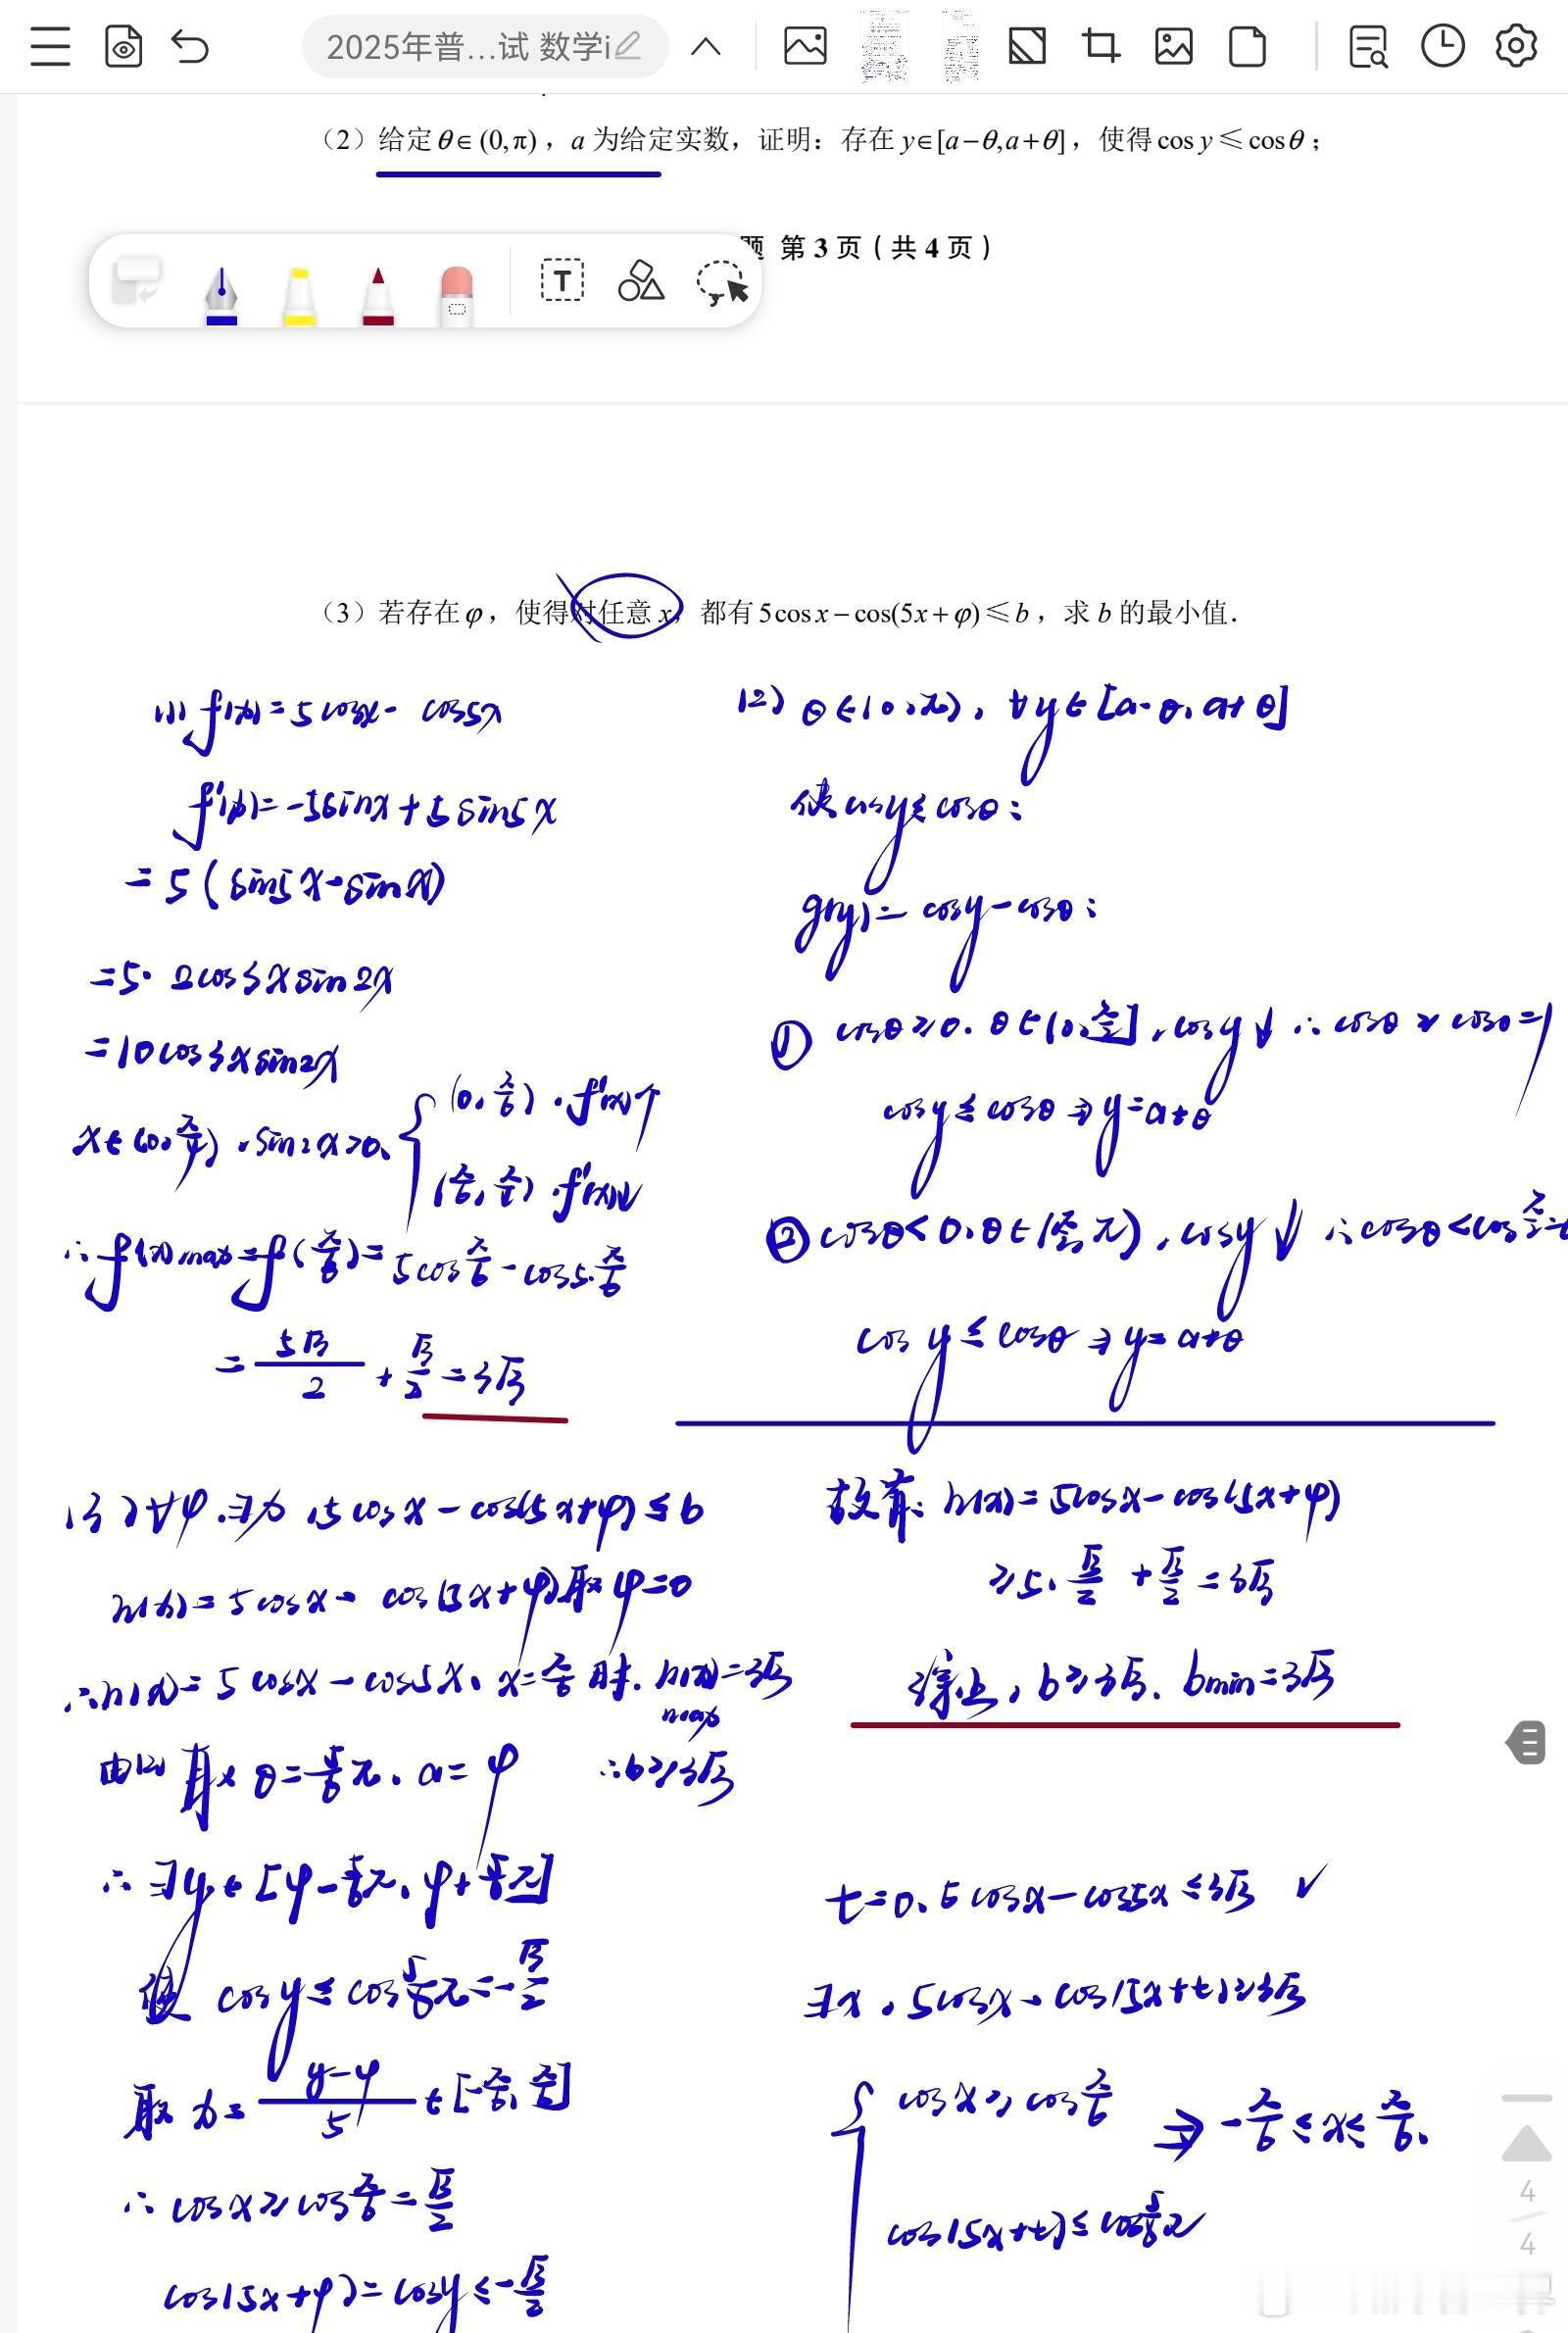 2025年普...试 数学i
（2）给定θ∈(0,π)，a 为给定实数，证明：存在 y∈[a−θ,a+θ]，使得cos y≤cosθ；
题 第 3 页（共 4 页）
T
（3）若存在φ，使得对任意 x，都有5cos x−cos(5x+φ)≤b，求 b 的最小值．
(1) f(x)=5cosx- cos5x
f'(x)=-5sinx+5sin5x
=5(sin5x-sinx)
=5·2cos3xsin2x
=10cos3xsin2x
x∈(0,π/4),sin2x>0,
(0,π/6),f(x)↑
(π/6,π/4),f(x)↓
∴f(x)max=f(π/6)=5cosπ/6-cos5·π/6
=5√3/2+√3/2=3√3
(2) θ∈(0,π),∀y∈[a-θ,a+θ]
使cosy≤cosθ:
g(y)=cosy-cosθ:
① cosθ≥0.θ∈(0,π/2],cosy↓∴cosθ≥cos0=1
cosy≤cosθ⇒y=a+θ
② cosθ<0.θ∈(π/2,π),cosy↓∴cosθ<cosπ/2=
cosy≤cosθ⇒y=a+θ
(3)∀φ.∃x,5cosx-cos(5x+φ)≤b
h(x)=5cosx-cos(5x+φ)取φ=0
∴h(x)=5cosx-cos5x,x=π/6时.h(x)max=3√3
由(2)取θ=5/6π,a=φ ∴b≥3√3
∴∃y∈[φ-5/6π,φ+5/6π]
使 cosy≤cos5/6π=-√3/2
取x=(y-φ)/5∈[-π/6,π/6]
∴cosx≥cosπ/6=√3/2
cos(5x+φ)=cosy≤-√3/2
故有:h(x)=5cosx-cos(5x+φ)
≥5·√3/2+√3/2=3√3
综上,b≥3√3.bmin=3√3
t=0.5cosx-cos5x≤3√3 ✓
∃x,5cosx-cos(5x+t)≥3√3
cosx≥cosπ/6 ⇒-π/6≤x≤π/6.
cos(5x+t)≤cos5/6π
4
4